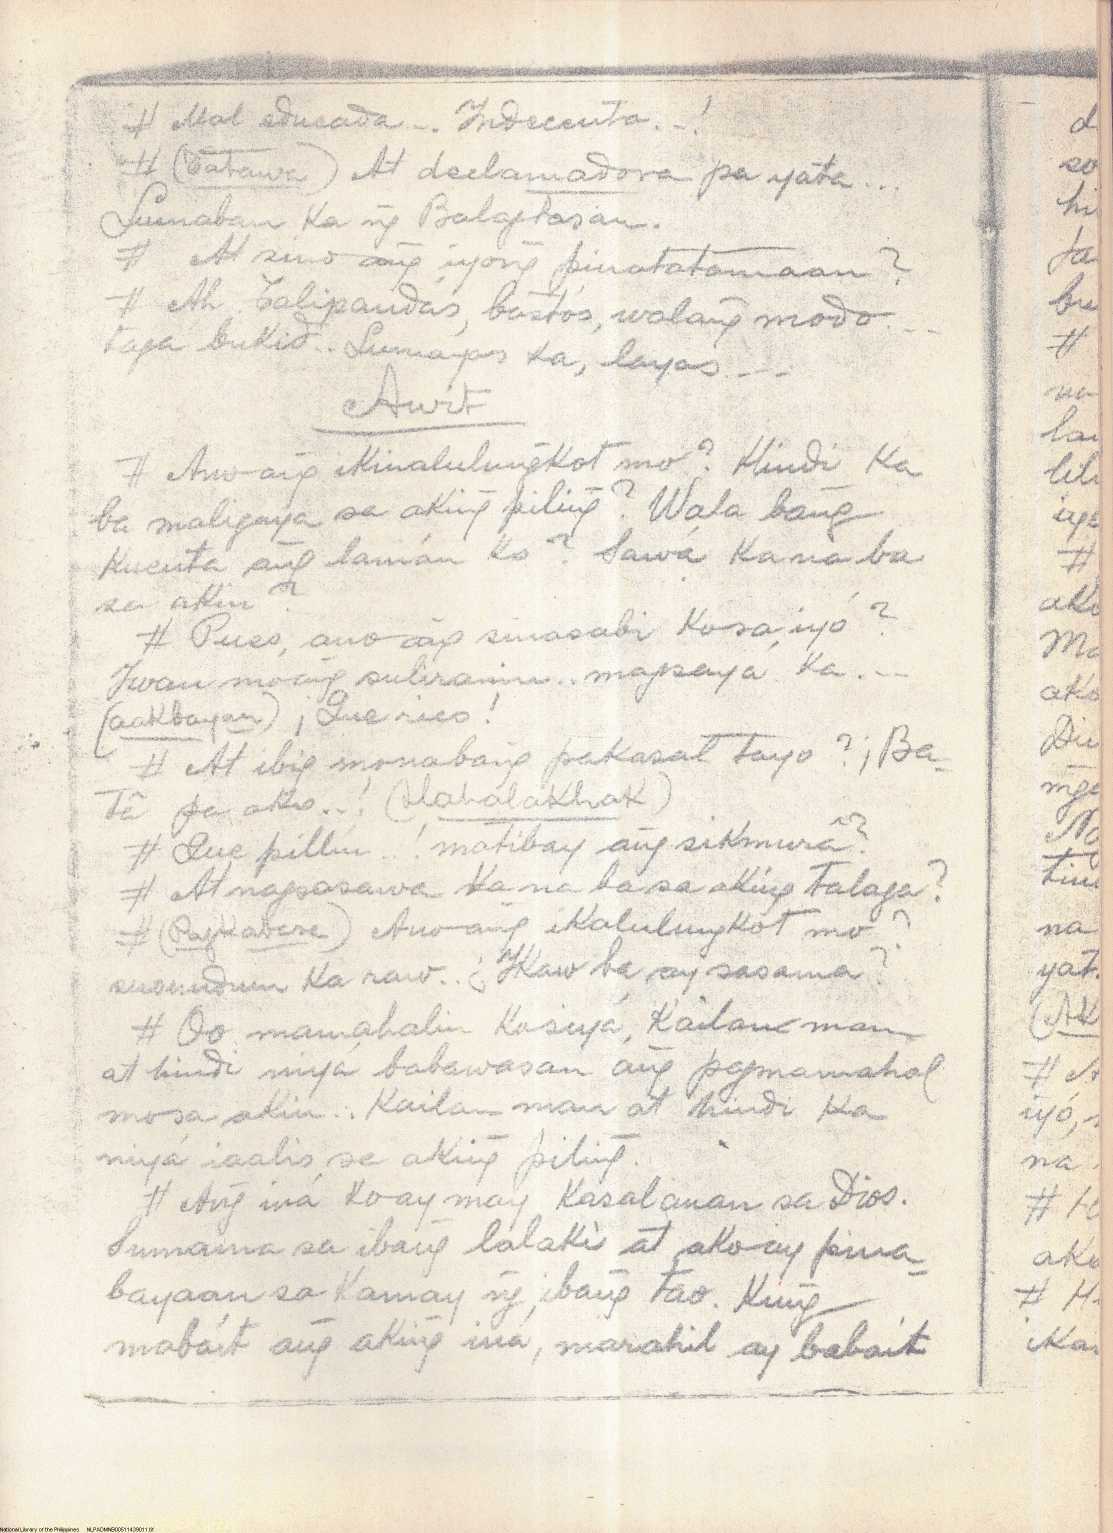 # Mal educada... Indecenta..!
# (Tatawa) At declamadora pa yata...
Lumaban ka ng̃ Balagtasan.
# At sino ang̃ iyong̃ pinatatamaan?
# Ah Talipandás, bastós, walang̃ modo...
taga bukid.. Lumayas ka, layas...
Awit
# Ano ang̃ ikinalulung̃kot mo? Hindi ka
ba maligaya sa aking̃ piling̃? Wala bang̃
kuenta ang̃ lamán ko? Sawá ka na ba
sa akin?
# Puso, ano ang̃ sinasabi ko sa iyó?
Iwan mo ang̃ suliranin.. magsayá ka...
(aakbayan) ¡Que rico!
# At ibig mo na bang̃ pakasal tayo? ¡Ba-
tâ pa ako..! (Hahalakhak)
# Que pillin..! matibay ang̃ sikmurâ?
# At nagsasawa ka na ba sa aking̃ talaga?
# Ano ang̃ ikalulung̃kot mo?
susunduin ka raw.. ¿Ikaw ba ay sasama?
# Oo mamahalin ko siyá, kailan man
at hindi niyá babawasan ang̃ pagmamahal
mo sa akin.. Kailan man at hindi ka
niyá iaalis sa aking̃ piling̃.
# Ang̃ iná ko ay may kasalanan sa Dios.
Sumama sa ibang̃ lalaki at ako ay pina-
bayaan sa kamay ng̃ ibang̃ tao. Kung̃
mabait ang̃ aking̃ iná, marahil ay babait
National Library of the Philippines